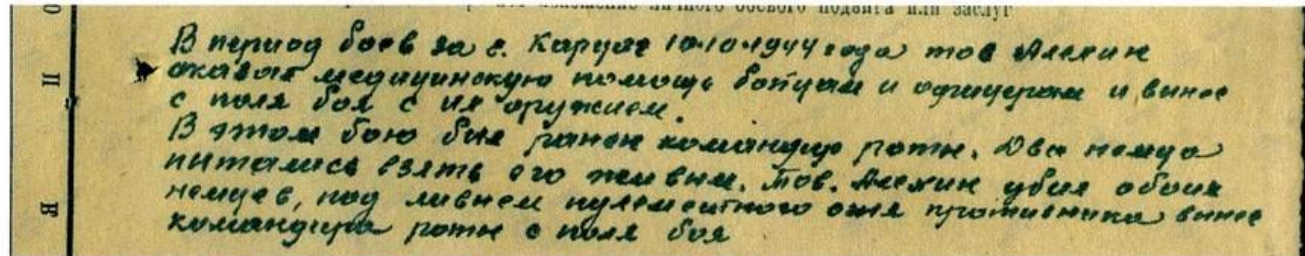 изложение личного боевого подвига или заслуг
О
П
В
В период боев за с. Каруат 10.10.1944 года тов Алехин
оказал медицинскую помощь бойцам и офицерам и вынес
с поля боя с их оружием.
В этом бою был ранен командир роты. Два немца
пытались взять его живым. Тов. Алехин убил обоих
немцев, под ливнем пулеметного огня противника вынес
командира роты с поля боя